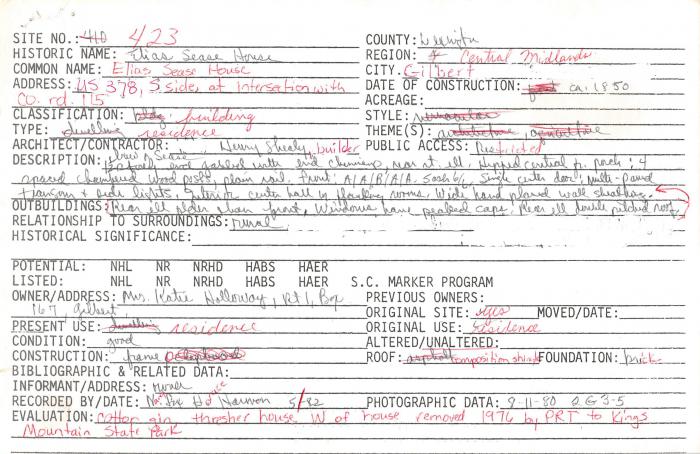 SITE NO.: 410 423 COUNTY: Lexington
HISTORIC NAME: Elias Sease House REGION: 4 Central Midlands
COMMON NAME: Elias Sease House CITY: Gilbert
ADDRESS: US 378, S side, at intersection with DATE OF CONSTRUCTION: ca. 1850
Co. rd. 115 ACREAGE:
CLASSIFICATION: bldg. building STYLE: vernacular
TYPE: dwelling residence THEME(S): architecture, agriculture
ARCHITECT/CONTRACTOR: Henry Shealy, builder PUBLIC ACCESS: restricted
Drew B. Sease
DESCRIPTION: gabled with end chimneys, rear at. ell, Hipped central p. porch; 4
spaced chamfered wood posts, plain rail. Front: A|A|B|A|A. Sash 6/6, Single center door; multi-paned
transom & side lights, Interior center hall w/ flanking rooms, Wide hand planed wall sheathing.
OUTBUILDINGS: Rear ell older than front, Windows have peaked caps, Rear ell double pitched roof.
RELATIONSHIP TO SURROUNDINGS: rural
HISTORICAL SIGNIFICANCE:
POTENTIAL: NHL NR NRHD HABS HAER
LISTED: NHL NR NRHD HABS HAER S.C. MARKER PROGRAM
OWNER/ADDRESS: Mrs. Katie Holloway, Rt 1, Box PREVIOUS OWNERS:
167, Gilbert ORIGINAL SITE: yes MOVED/DATE:
PRESENT USE: dwelling residence ORIGINAL USE: residence
CONDITION: good ALTERED/UNALTERED:
CONSTRUCTION: frame clapboard ROOF: asphalt composition shingle FOUNDATION: brick
BIBLIOGRAPHIC & RELATED DATA:
INFORMANT/ADDRESS: owner
RECORDED BY/DATE: Harmon 5/82 PHOTOGRAPHIC DATA: 9-11-80 2G3-5
EVALUATION: cotton gin thresher house W of house removed 1976 by PRT to Kings
Mountain State Park